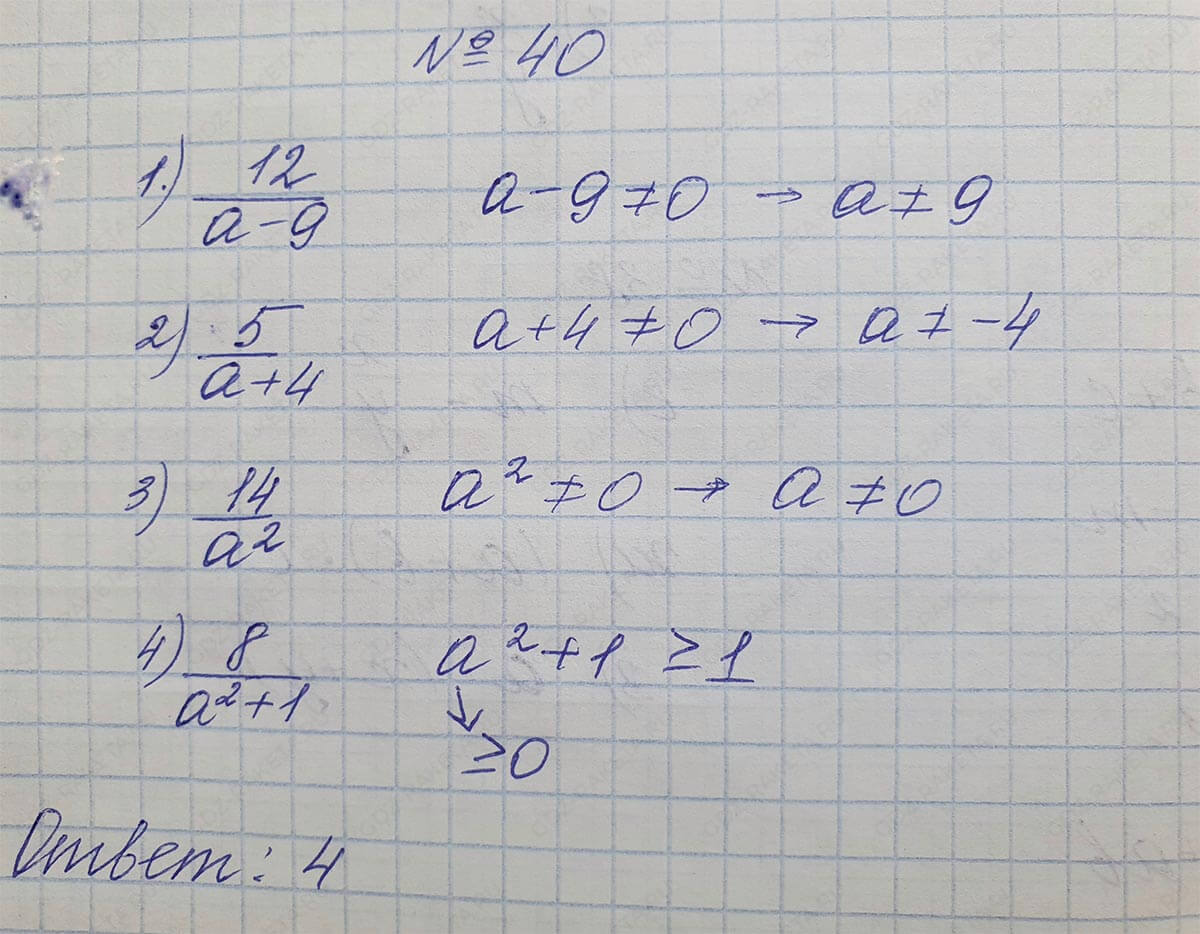 № 40
1.) 12/(a-9) a-9≠0 → a≠9
2) 5/(a+4) a+4≠0 → a≠-4
3) 14/a² a²≠0 → a≠0
4) 8/(a²+1) a²+1 ≥1
↓
≥0
Ответ: 4